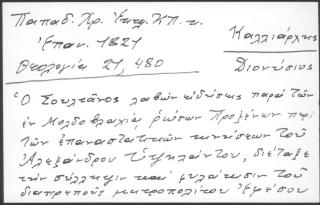 Παπαδ. Χρ. Ἐκκλ. ΚΠ. κ.
Ἐπαν. 1821
Θεολογία 21, 480
Καλλιάρχης
Διονύσιος
Ὁ Σουλτᾶνος λαβών εἰδήσεις παρά τῶν
ἐν Μολδοβλαχίᾳ ρώσων Προξένων περί
τῶν ἐπαναστατικῶν κινήσεων τοῦ
Ἀλεξάνδρου Ὑψηλάντου, διέταξε
τήν σύλληψιν καί φυλάκισιν τοῦ
διαπρεποῦς μητροπολίτου Ἐφέσου